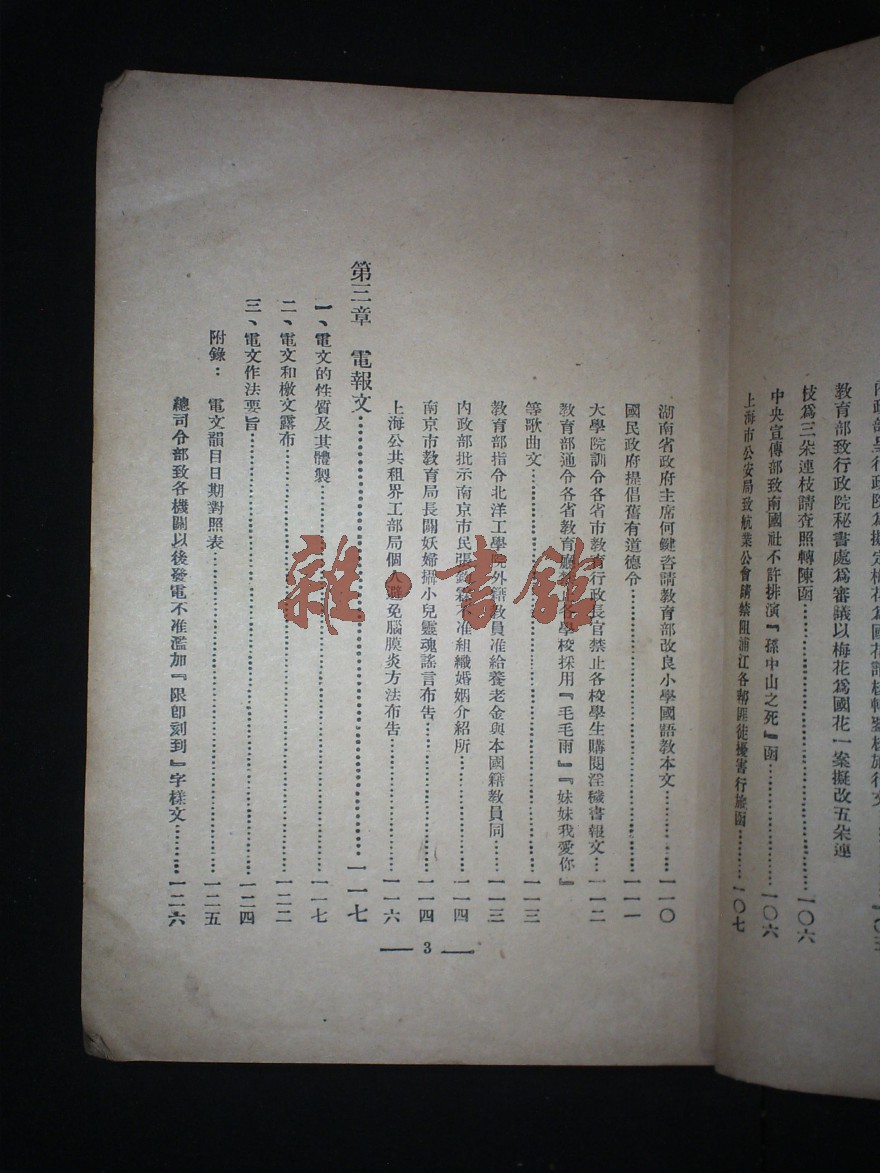 教育部致行政院秘書處爲審議以梅花爲國花一案擬改五朵連
枝爲三朵連枝請查照轉陳函……一〇六
中央宣傳部致南國社不許排演『孫中山之死』函……一〇六
上海市公安局致航業公會請禁阻浦江各幫匪徒擾害行旅函……一〇七
湖南省政府主席何鍵咨請教育部改良小學國語教本文……一一〇
國民政府提倡舊有道德令……一一一
大學院訓令各省市教育行政長官禁止各校學生購閱淫穢書報文……一一二
教育部通令各省教育廳各學校採用『毛毛雨』『妹妹我愛你』
等歌曲文……一一三
教育部指令北洋工學院外籍教員准給養老金與本國籍教員同……一一三
內政部批示南京市民張不准組織婚姻介紹所……一一四
南京市教育局長闢妖婦攝小兒靈魂謠言布告……一一四
上海公共租界工部局個人避免腦膜炎方法布告……一一六
第三章 電報文……一一七
一、電文的性質及其體製……一一七
二、電文和檄文露布……一二二
三、電文作法要旨……一二四
附錄：電文韻目日期對照表……一二五
總司令部致各機關以後發電不准濫加『限卽刻到』字樣文……一二六
3
雜·書館